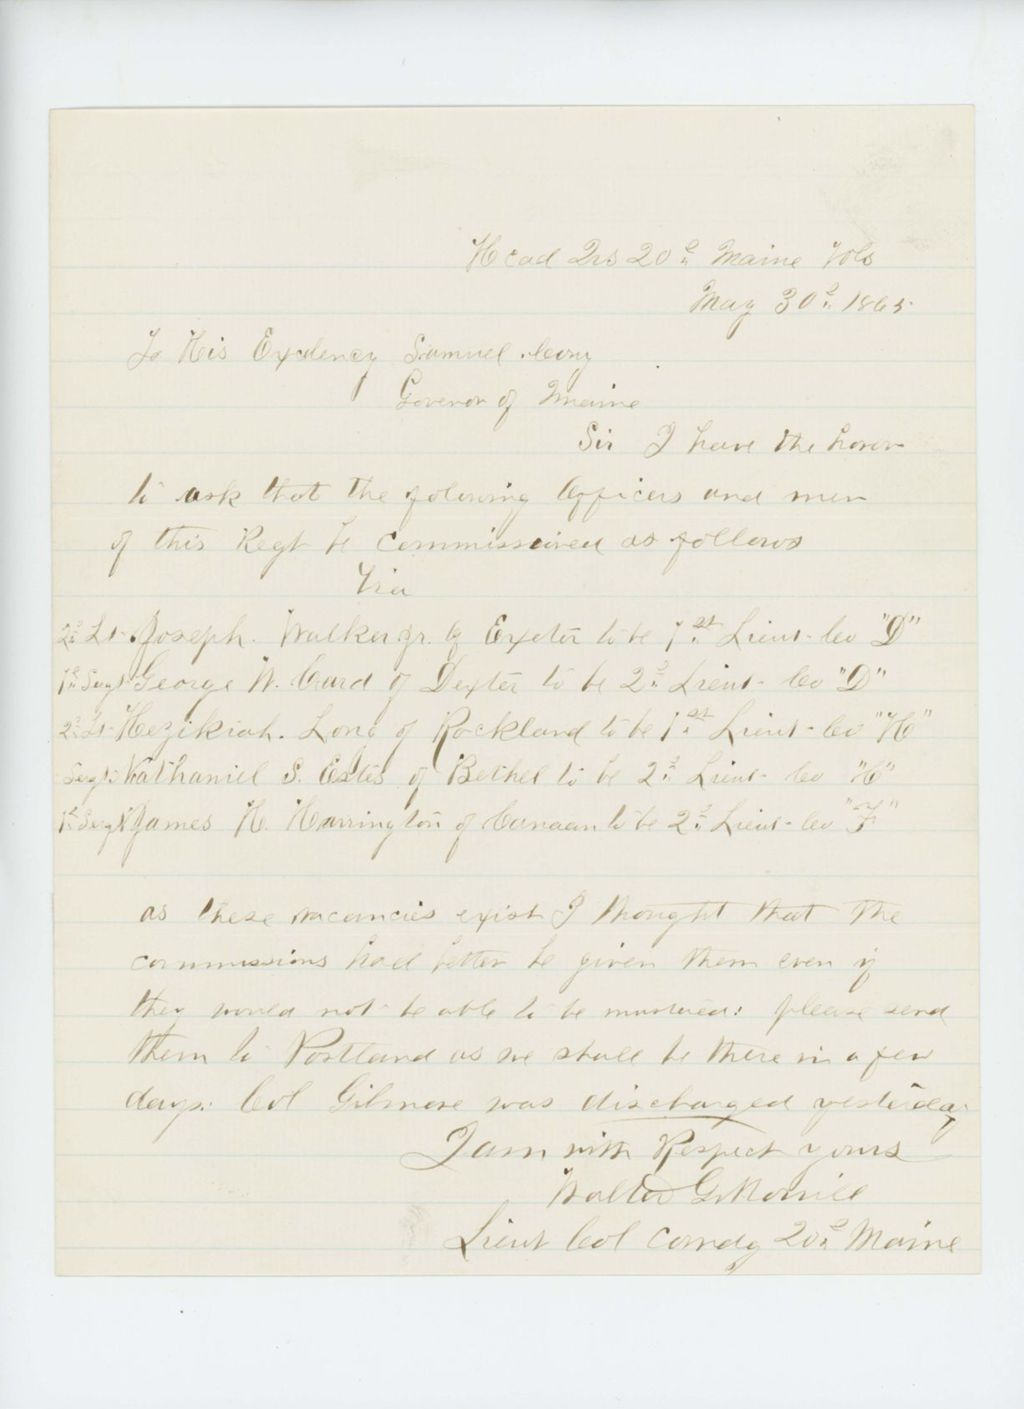 Head Qrs 20th Maine Vols
May 30th 1865
To His Exelency Samuel Cony
Govenor of Maine
Sir I have the honor
to ask that the folowing Officers and men
of this Regt be Commissioned as follows
Viz
2d Lt Joseph. Walker Jr. of Exeter to be 1st Lieut- Co "D"
1st Sergt George W. Card of Dexter to be 2d Lieut- Co "D"
2d Lt Hezikiah. Long of Rockland to be 1st Lieut- Co "H"
Sergt Nathaniel S. Estes of Bethel to be 2d Lieut- Co "H"
1st Sergt James H. Harrington of Canaan to be 2d Lieut- Co "F"
as these vacancies exist I thought that the
commissions had better be given them even if
they would not be able to be mustered: please send
them to Portland as we shall be there in a few
days: Col Gilmore was discharged yesterday
I am with Respect yours
Walter G. Morrill
Lieut Col Comdg 20th Maine